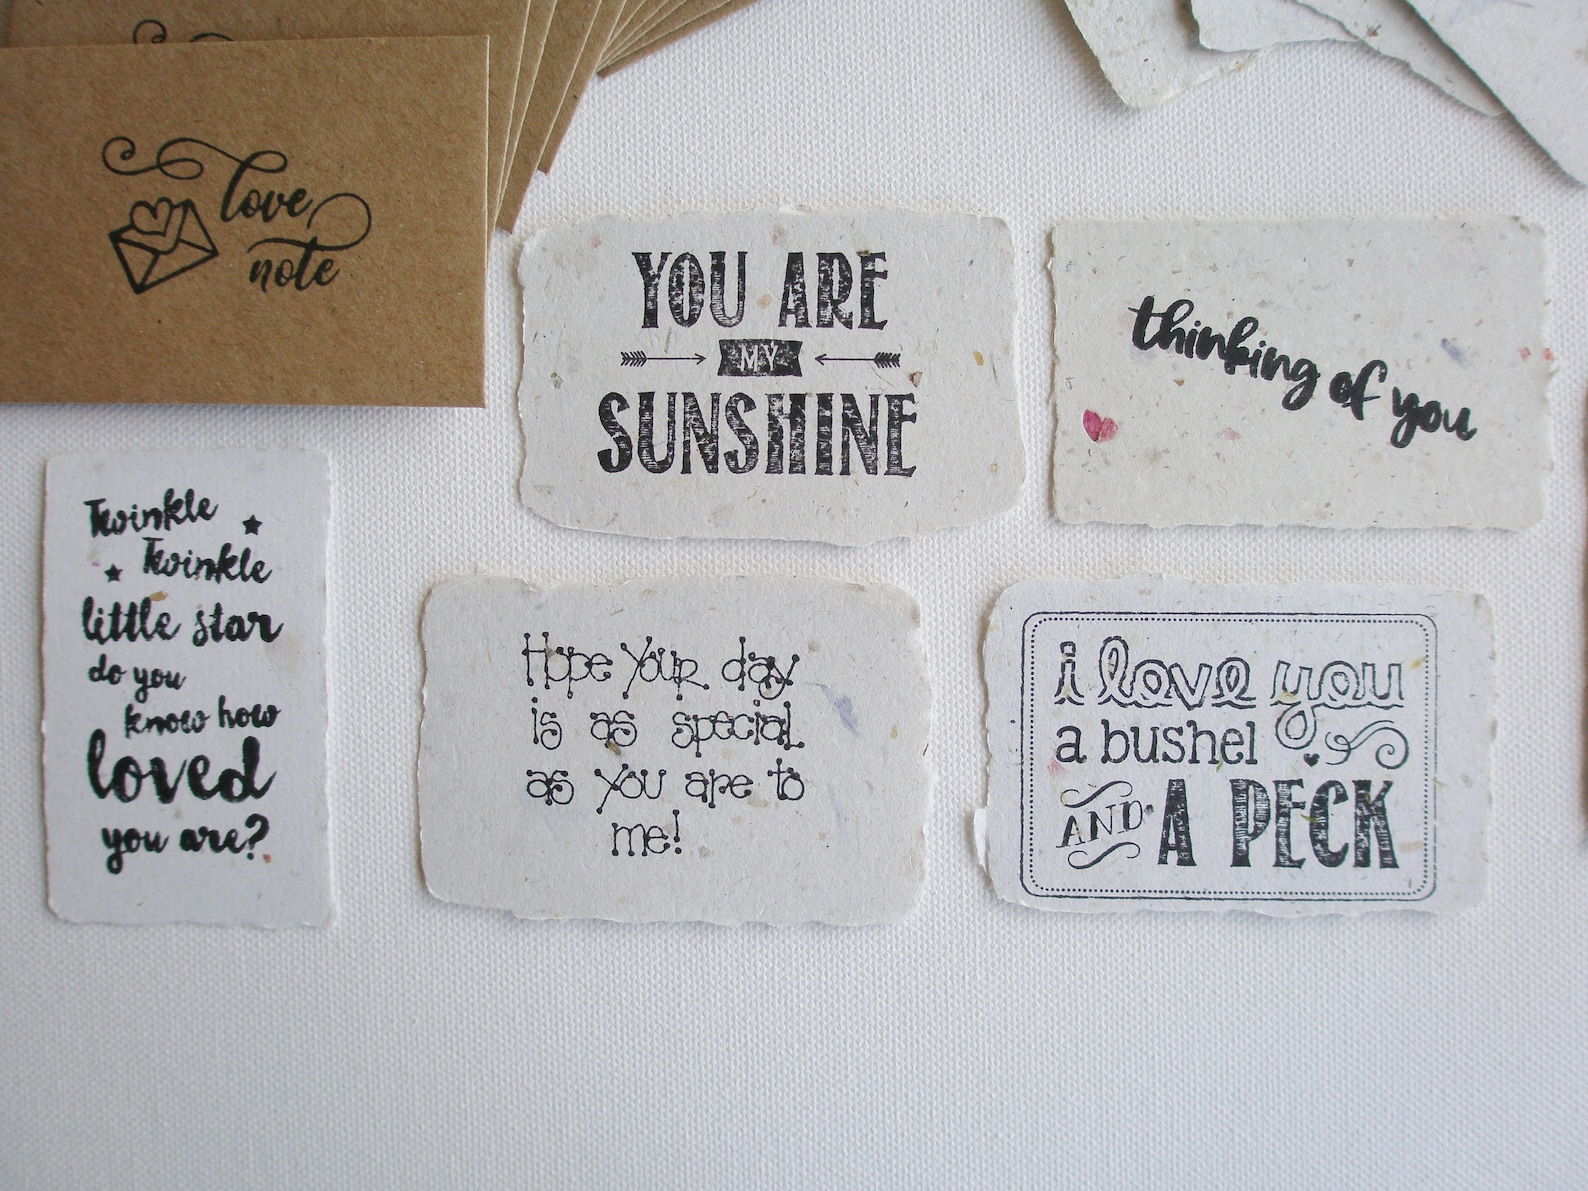 love
note
YOU ARE
MY
SUNSHINE
thinking of you
Twinkle
Twinkle
little star
do you
know how
loved
you are?
Hope your day
is as special
as you are to
me!
i love you
a bushel
AND A PECK